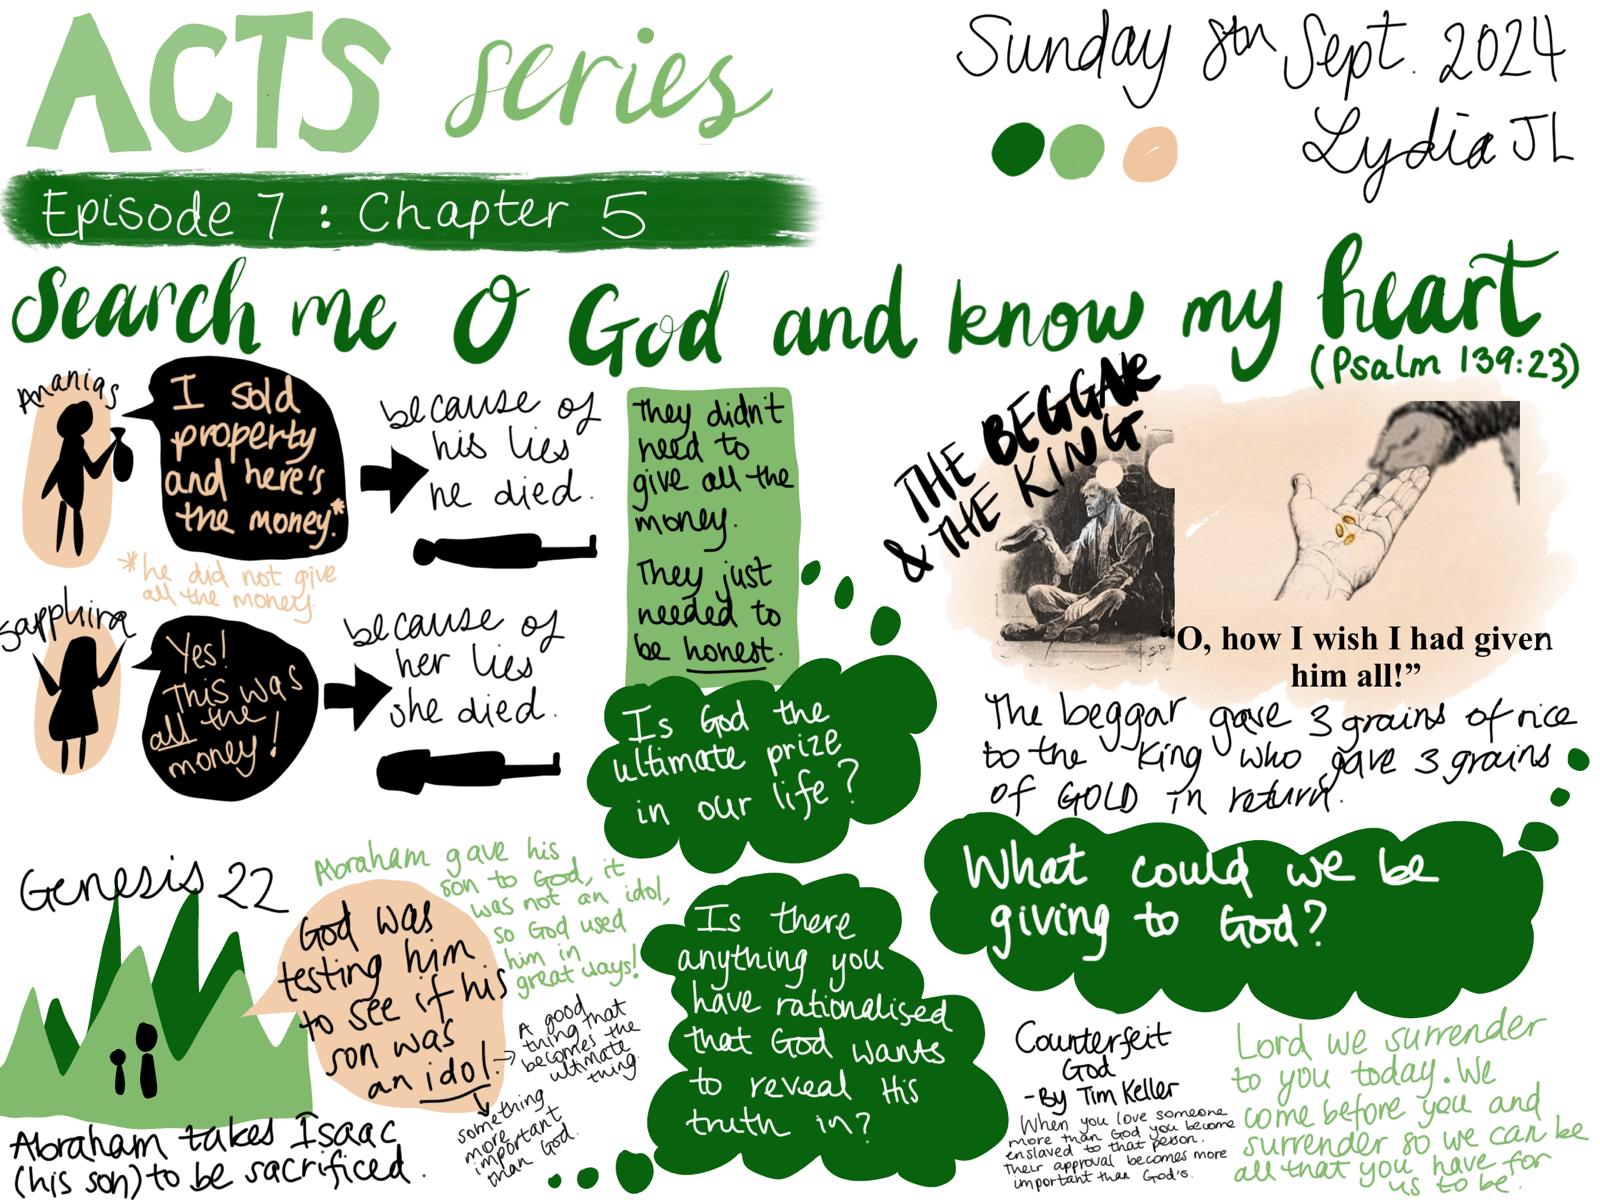 ACTS series
Sunday 8th Sept. 2024
Lydia JL
Episode 7 : Chapter 5
Search me O God and know my heart
(Psalm 139:23)
Ananias
I sold
property
and here's
the money.*
because of
his lies
he died.
*he did not give
all the money.
Sapphira
Yes!
This was
all the
money!
because of
her lies
she died.
They didn't
need to
give all the
money.
They just
needed to
be honest.
Is God the
ultimate prize
in our life?
THE BEGGAR
& THE KING
"O, how I wish I had given
him all!"
The beggar gave 3 grains of rice
to the King who gave 3 grains
of GOLD in return.
What could we be
giving to God?
Genesis 22
Abraham gave his
son to God, it
was not an idol,
so God used
him in
great ways!
God was
testing him
to see if his
son was
an idol.
A good
thing that
becomes the
ultimate
thing
something
more
important
than God.
Abraham takes Isaac
(his son) to be sacrificed.
Is there
anything you
have rationalised
that God wants
to reveal His
truth in?
Counterfeit
God
- By Tim Keller
When you love someone
more than God you become
enslaved to that person.
Their approval becomes more
important than God's.
Lord we surrender
to you today. We
come before you and
surrender so we can be
all that you have for
us to be.